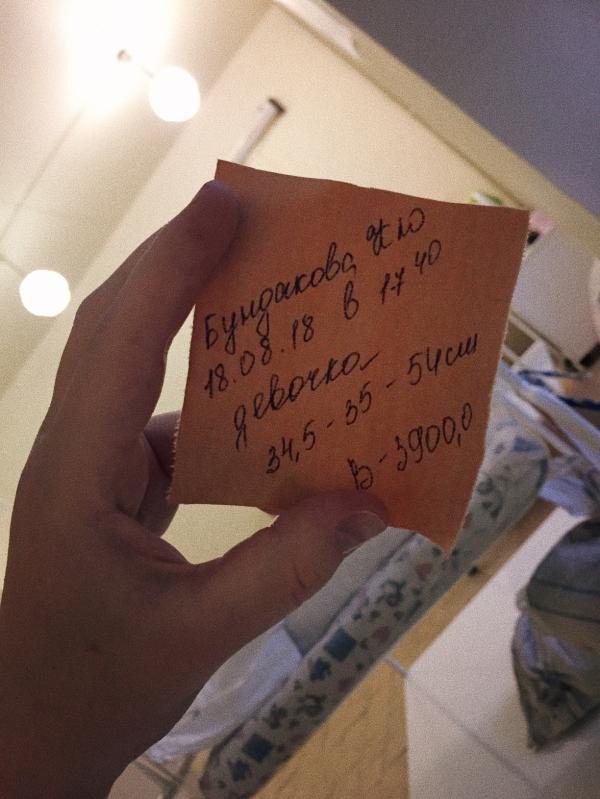 Бундакова Ж Ю
18.08.18 в 17 40
девочка
34,5 - 35 - 54 см
В - 3900,0